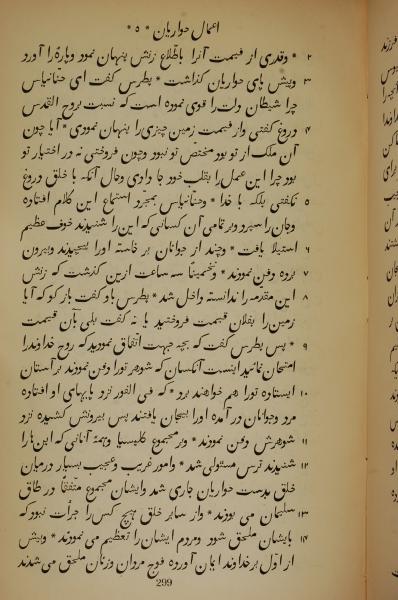 اعمال حواریان * ۵ *
۲ * وقدری از قیمت آنرا باطلاع زنش پنهان نمود وپارهٔ را آورد
۳ وپیش پای حواریان گذاشت * پطرس گفت ای حنانیاس
چرا شیطان دلت را قوی نموده است که نسبت بروح القدس
۴ دروغ گفتی واز قیمت زمین چیزی را پنهان نمودی * آیا چون
آن ملک از تو بود مختص تو نبود وچون فروختی نه در اختیار تو
بود چرا این عمل را بقلب خود جا دادی وحال آنکه با خلق دروغ
۵ نگفتی بلکه با خدا * وحنانیاس بمجرد استماع این کلام افتاده
وجان را سپرد وبر تمامی آن کسانی که این را شنیدند خوف عظیم
۶ استیلا یافت * وچند از جوانان بر خاسته اورا پیچیدند وبیرون
۷ برده دفن نمودند * وتخمیناً سه ساعت ازین گذشت که زنش
۸ این مقدمه را ندانسته داخل شد * پطرس باو گفت باز گو که آیا
زمین را بفلان قیمت فروختید یا نه گفت بلی بآن قیمت
۹ * پس پطرس گفت که بچه جهت اتفاق نمودید که روح خداوند را
امتحان نمائید اینست آنکسان که شوهر تورا دفن نمودند بر آستان
۱۰ ایستاده تورا هم خواهند برد * که فی الفور نزد پایهای او افتاده
مرد وجوانان در آمده اورا بیجان یافتند پس بیرونش کشیده نزد
۱۱ شوهرش دفن نمودند * وبر مجموع کلیسیا وهمهٔ آنانی که این را
۱۲ شنیدند ترس مستولی شد * وامور غریب وعجیب بسیار درمیان
خلق بدست حواریان جاری شد وایشان مجموع متفقاً در طاق
۱۳ سلیمان می بودند * واز سایر خلق هیچ کس را جرأت نبود که
۱۴ بایشان ملحق شود ومردم ایشان را تعظیم می نمودند * وبیش
از اول بر خداوند ایمان آورده فوج مردان وزنان ملحق می شدند
299